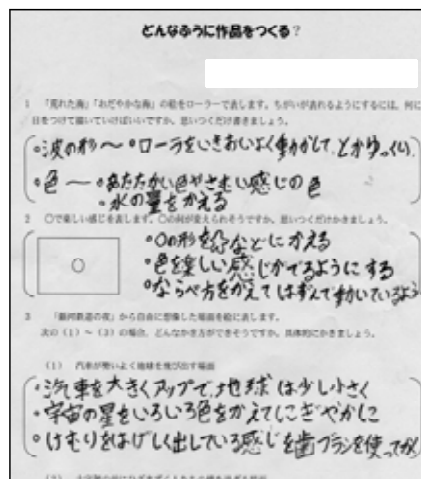 どんなふうに作品をつくる?
1 「荒れた海」「おだやかな海」の絵をローラーで表します。ちがいが表れるようにするには、何に
目をつけて描いていけばいいですか。思いつくだけ書きましょう。
・波の形〜・ローラをいきおいよく動かして、とかゆっくり、
・色〜・あたたかい色やさむい感じの色
・水の量をかえる
2 ○で楽しい感じを表します。○の何が変えられそうですか。思いつくだけかきましょう。
・○の形を などにかえる
・色を楽しい感じがでるようにする
・ならべ方をかえてはずんで動いているよう
3 「銀河鉄道の夜」から自由に想像した場面を絵に表します。
次の(1)〜(3)の場合、どんなかき方ができそうですか。具体的にかきましょう。
(1) 汽車が勢いよく地球を飛び出す場面
・汽車を大きくアップで、地球は少し小さく
・宇宙の星をいろいろ色をかえてにぎやかに
・けむりをはげしく出している感じを歯ブラシを使ってかく